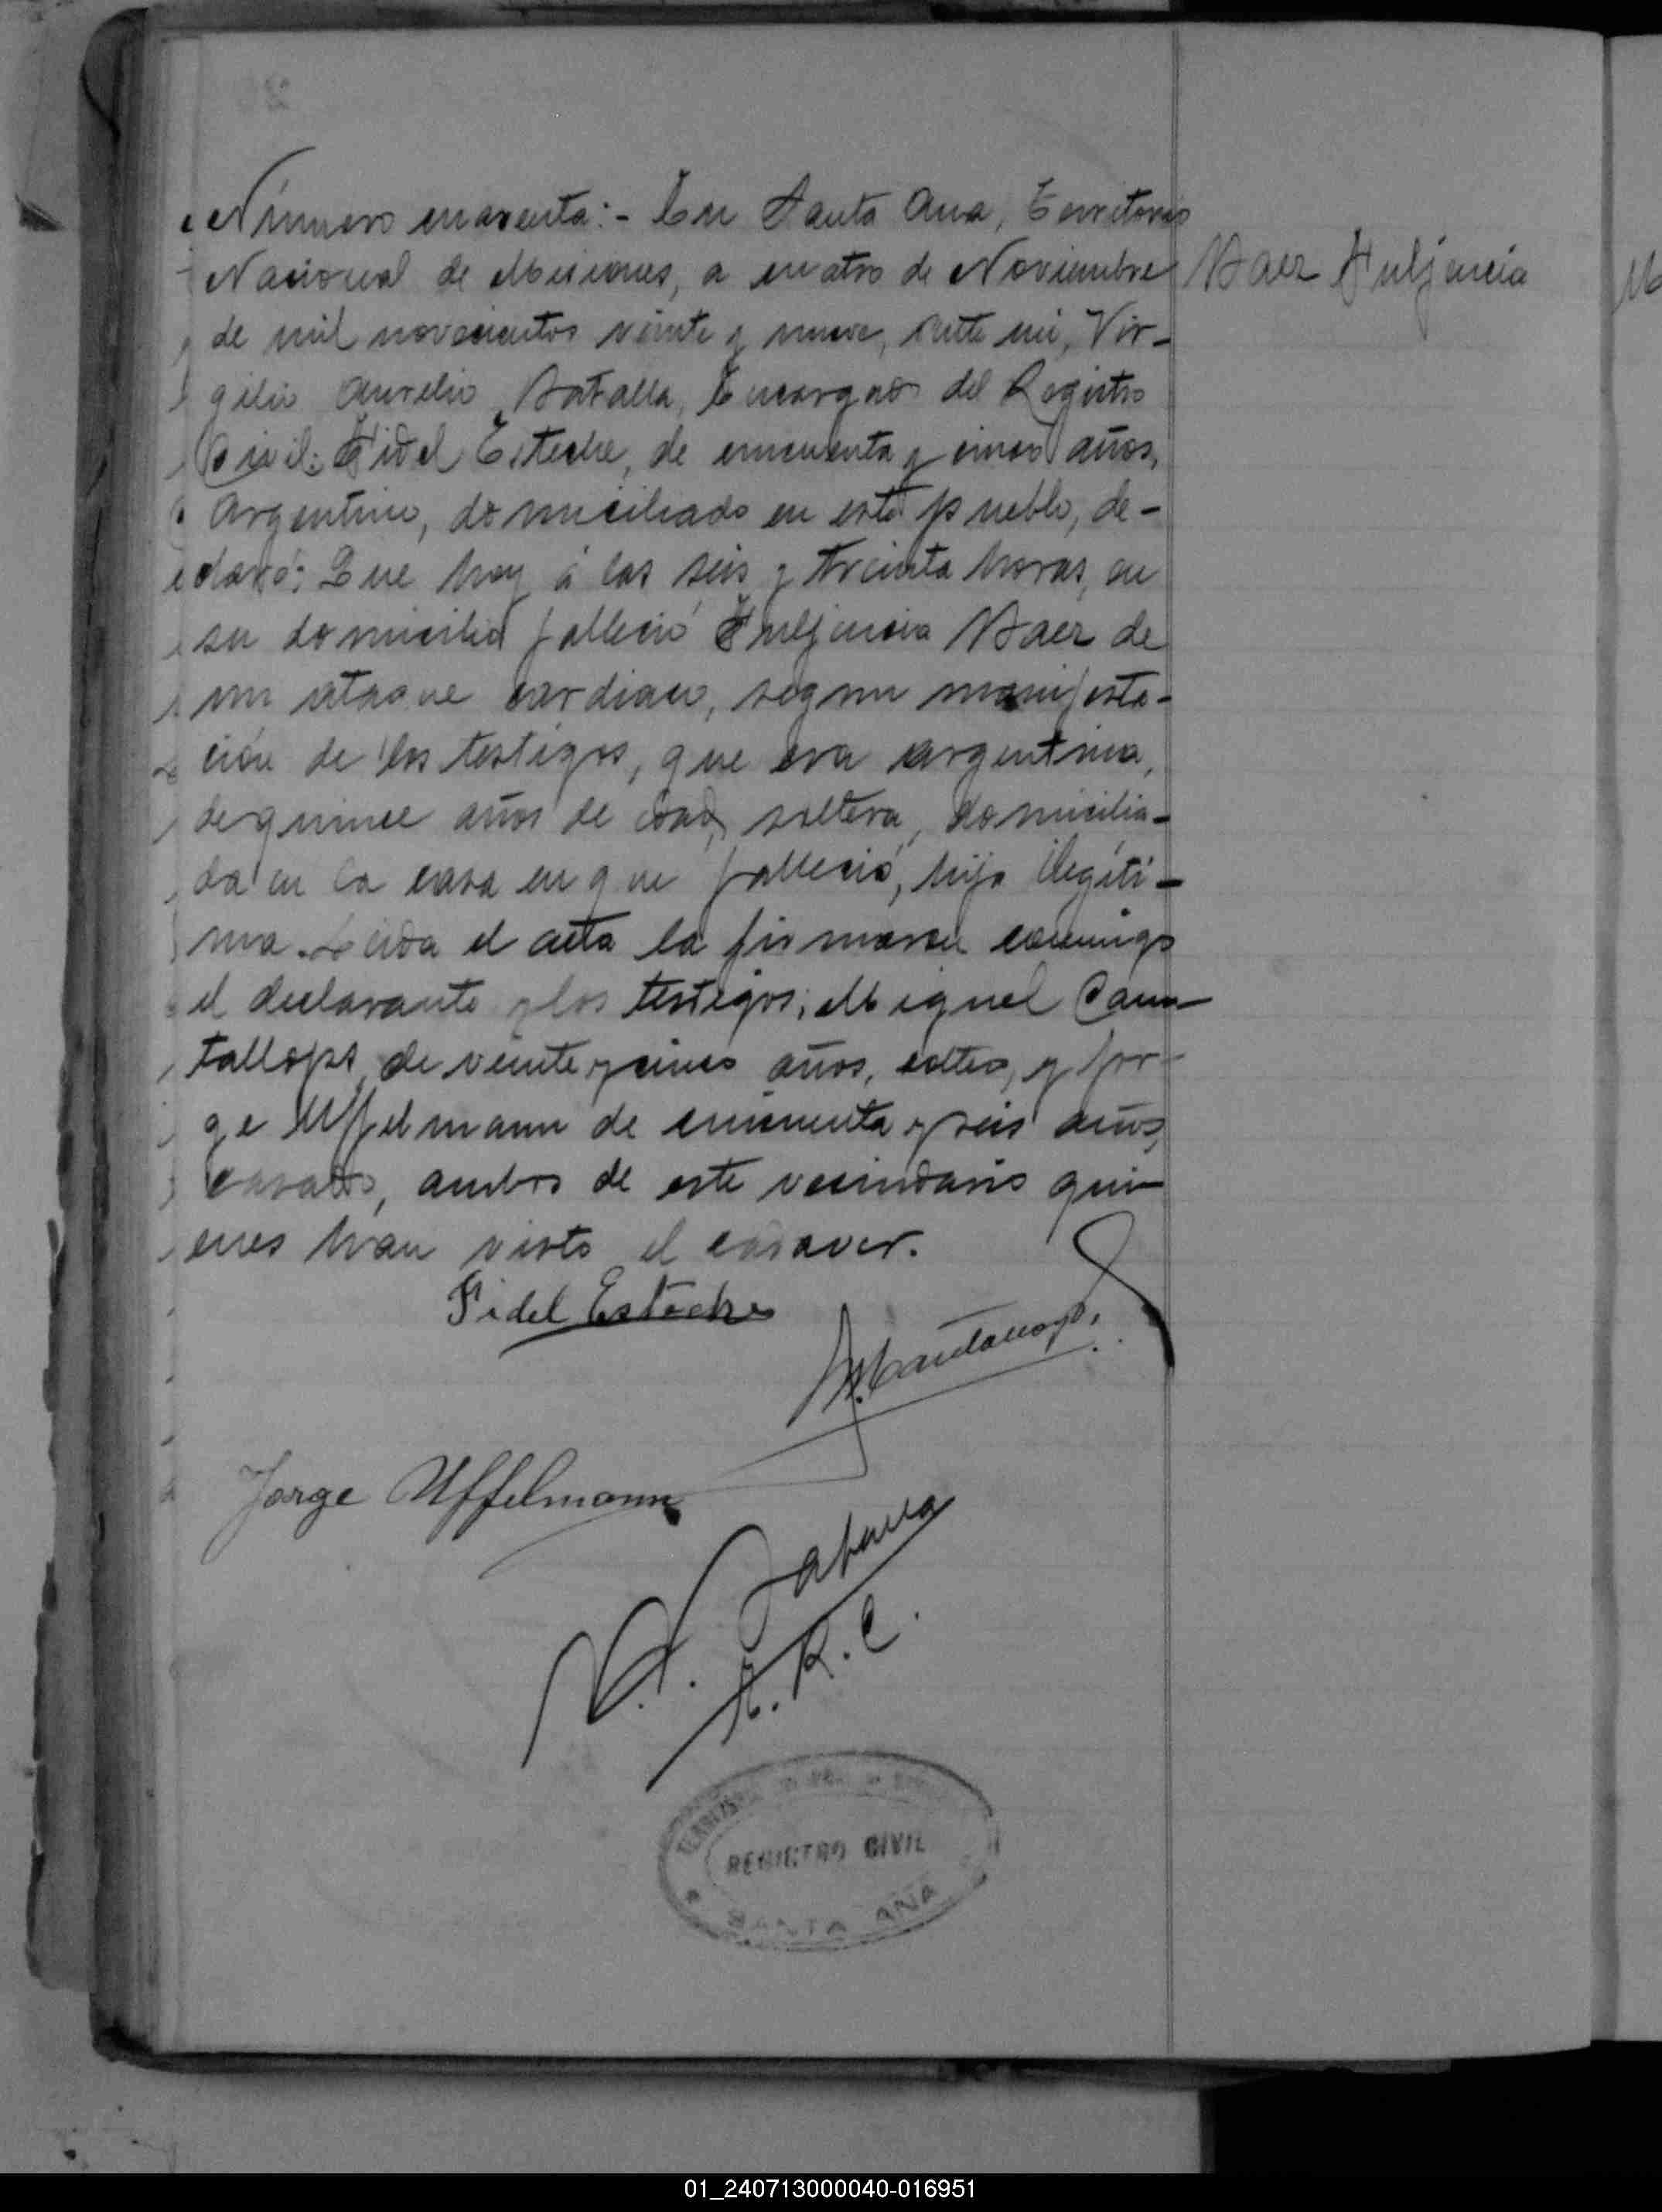 Número cuarenta:- En Santa Ana, Territorio
Nacional de Misiones, a cuatro de Noviembre
Baez Fuljencia
de mil novecientos veinte y nueve, ante mi, Vir-
gilio Aurelio Batalla, Encargado del Registro
Civil: Fidel Esteche, de cincuenta y cinco años,
Argentino, domiciliado en este pueblo, de-
claró: Que hoy á las seis y treinta horas, en
su domicilio falleció Fuljencia Baez de
un ataque cardiaco, segun manifesta-
ción de los testigos, que era argentina,
de quince años de edad, soltera, domicilia-
da en la casa en que falleció, hija ilegíti-
ma. Leida el acta la firmaron conmigo
el declarante y los testigos: Miguel
de veinte y cinco años, soltero, y Jor-
ge Uffelmann de cincuenta y seis años,
casado, ambos de este vecindario qui-
enes han visto el cadaver.
Fidel Esteche
Jorge Uffelmann
V. A. Batalla
E. R. C.
REGISTRO CIVIL
SANTA ANA
01_240713000040-016951